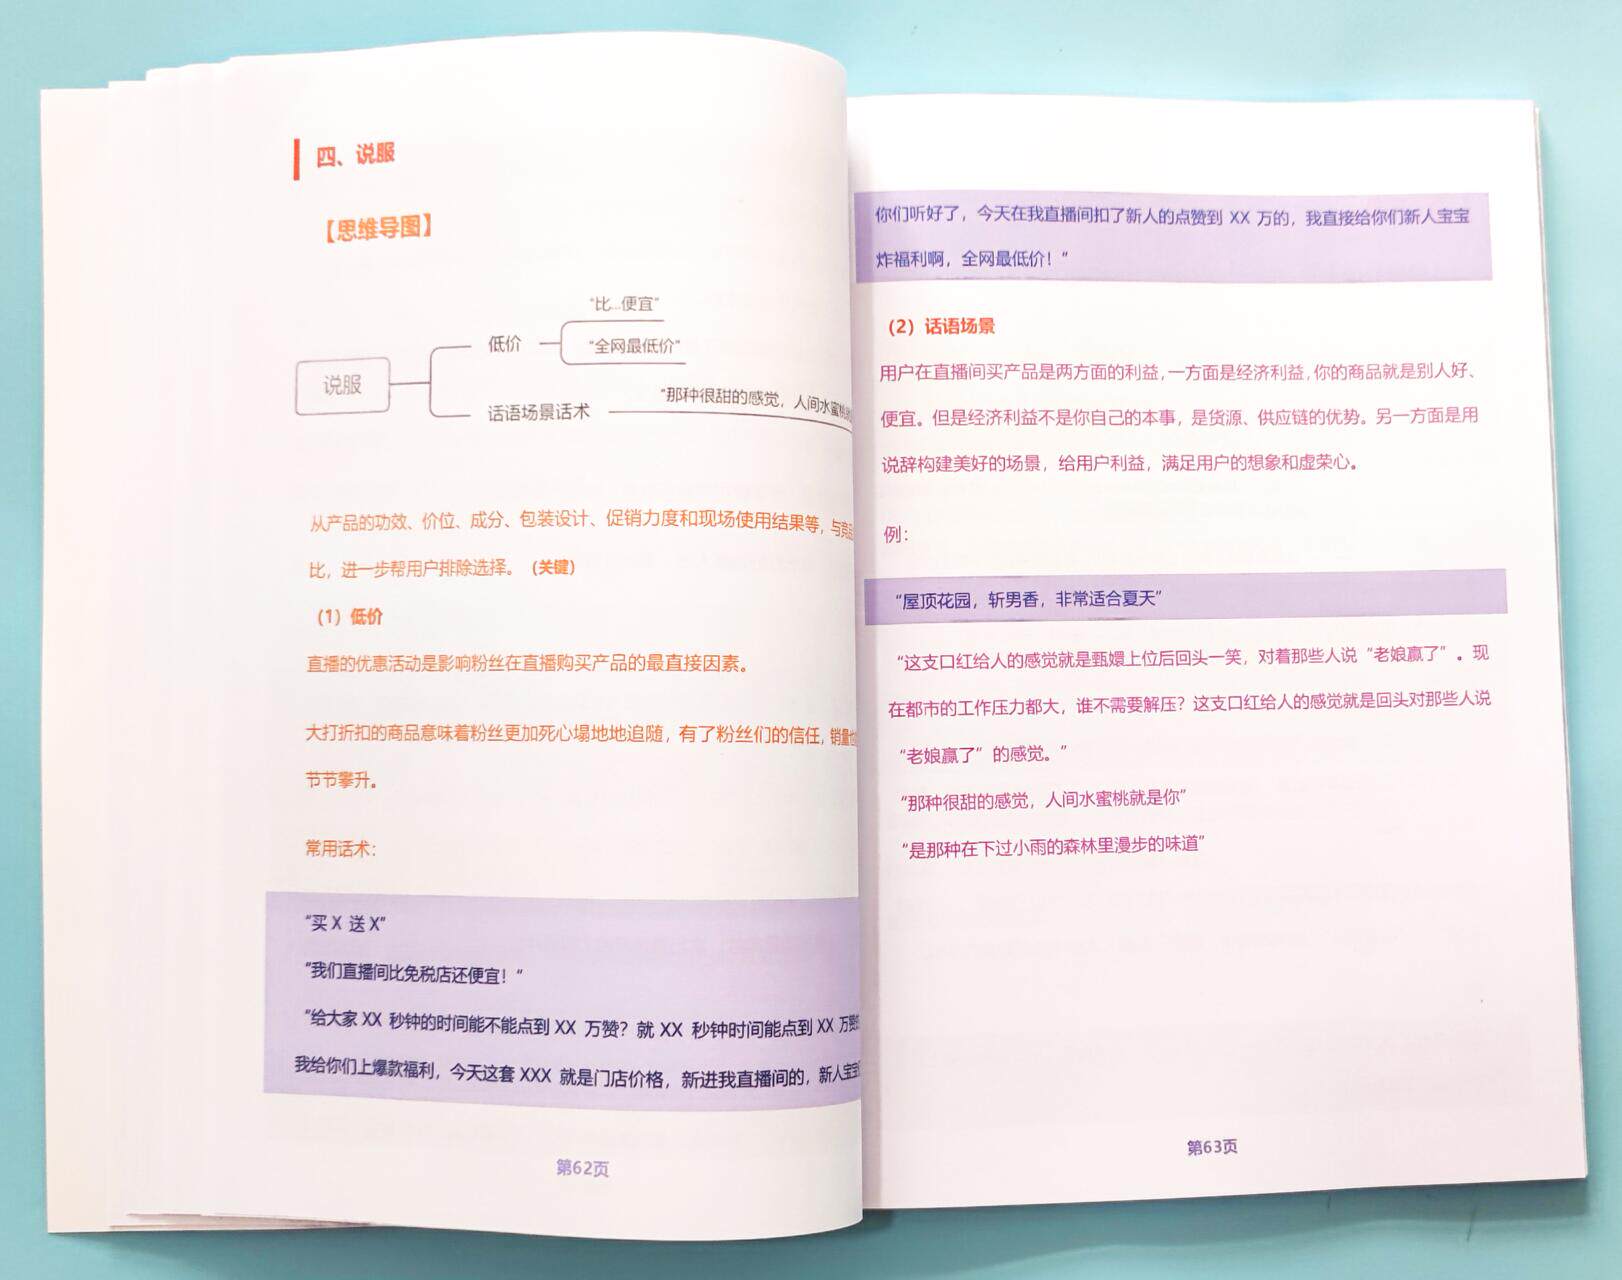 四、说服
【思维导图】
说服
低价
"比...便宜"
"全网最低价"
话语场景话术
"那种很甜的感觉，人间水蜜桃
从产品的功效、价位、成分、包装设计、促销力度和现场使用结果等，与竞品
比，进一步帮用户排除选择。（关键）
（1）低价
直播的优惠活动是影响粉丝在直播购买产品的最直接因素。
大打折扣的商品意味着粉丝更加死心塌地地追随，有了粉丝们的信任，销量也
节节攀升。
常用话术：
"买 X 送 X"
"我们直播间比免税店还便宜！"
"给大家 XX 秒钟的时间能不能点到 XX 万赞？就 XX 秒钟时间能点到 XX 万赞
我给你们上爆款福利，今天这套 XXX 就是门店价格，新进我直播间的，新人宝宝
第62页
你们听好了，今天在我直播间扣了新人的点赞到 XX 万的，我直接给你们新人宝宝
炸福利啊，全网最低价！"
（2）话语场景
用户在直播间买产品是两方面的利益，一方面是经济利益，你的商品就是别人好、
便宜。但是经济利益不是你自己的本事，是货源、供应链的优势。另一方面是用
说辞构建美好的场景，给用户利益，满足用户的想象和虚荣心。
例：
"屋顶花园，斩男香，非常适合夏天"
"这支口红给人的感觉就是甄嬛上位后回头一笑，对着那些人说"老娘赢了"。现
在都市的工作压力都大，谁不需要解压？这支口红给人的感觉就是回头对那些人说
"老娘赢了"的感觉。"
"那种很甜的感觉，人间水蜜桃就是你"
"是那种在下过小雨的森林里漫步的味道"
第63页